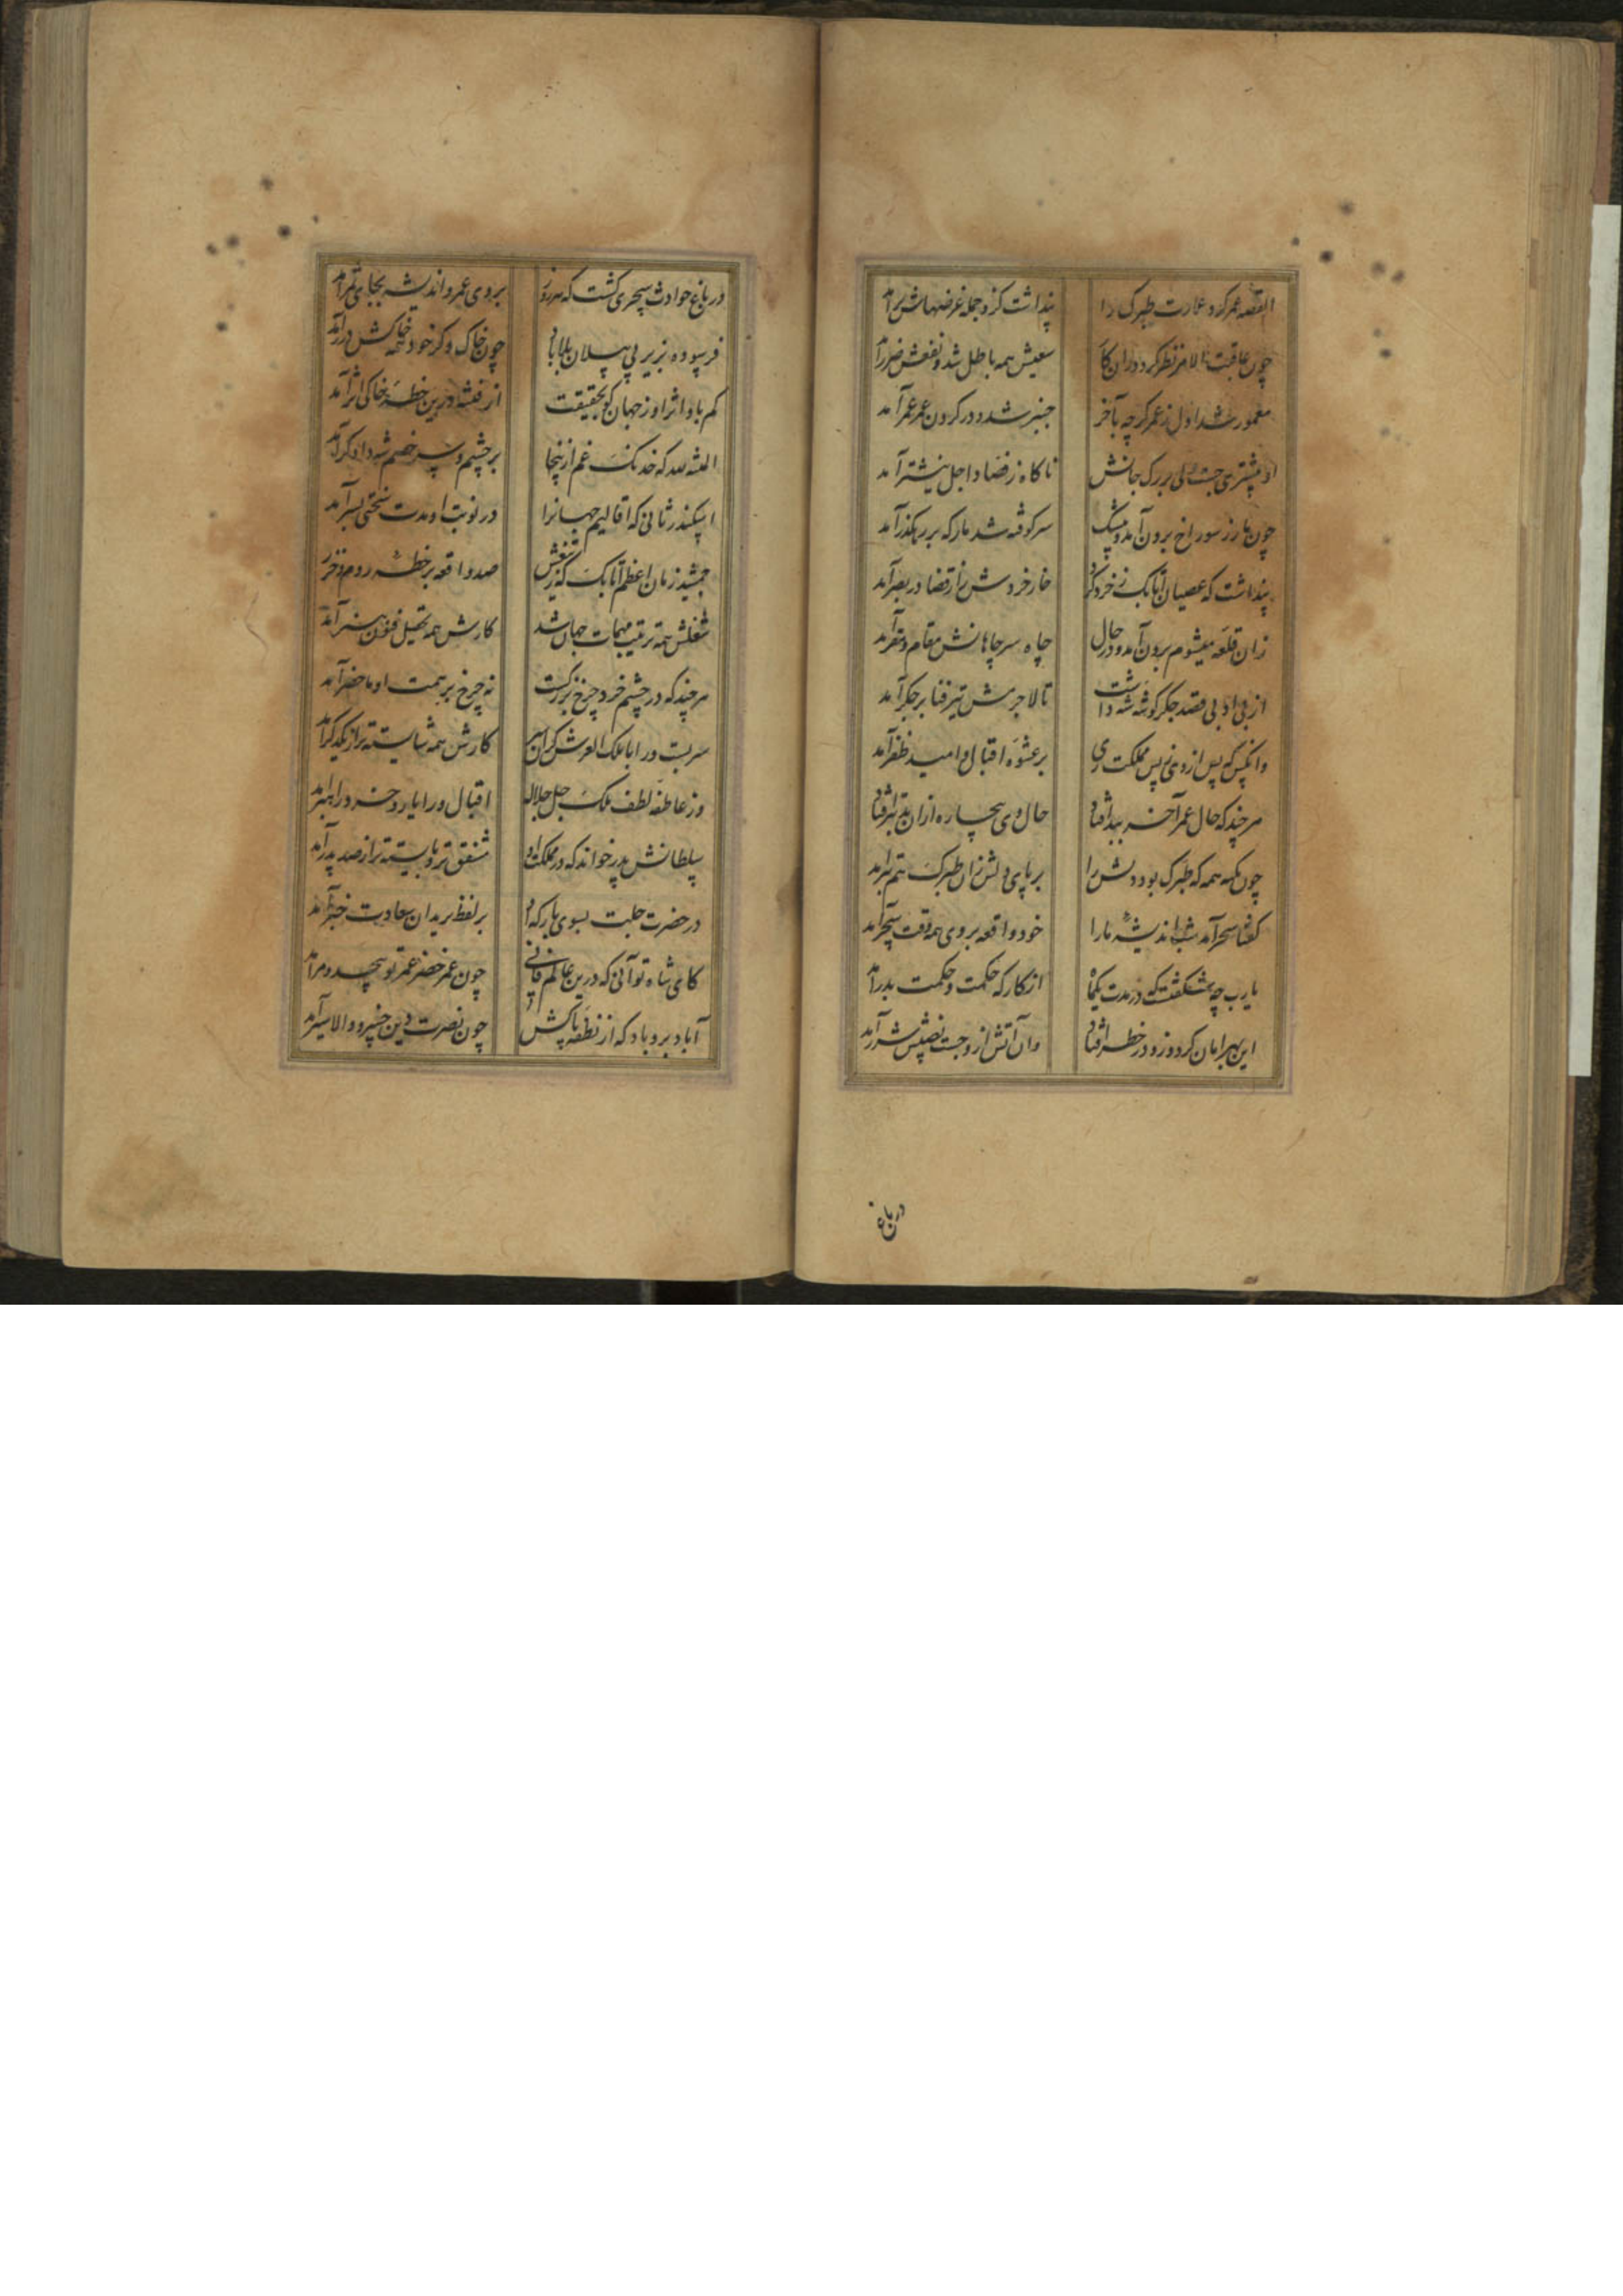 القصه عمر کرد عمارت طبرک را
پنداشت کزو جمله غرضهاش برآمد
چون عاقبت الامر نظر کرد در آن کار
سعیش همه باطل شد و نفعش ضرر آمد
معمور شد اول ز عمر گرچه بآخر
شد و در گردن عمر عمر آمد
او بیشتری جست ولی بر رگ جانش
ناگاه ز فصاد اجل نیشتر آمد
چون مار ز سوراخ برون آمد و بیشک
سرکوفته شد مار که بر رهگذر آمد
پنداشت که عصیان اتابک ز خرد کرد
خار خر و قضا در بصر آمد
زان قلعه میشوم برون آمد و در حال
چاه سر چاهانش مقام و مقر آمد
از بی ادبی قصد جگر گوشه شه داشت
تا لاجرمش تیر فنا بر جگر آمد
وانکس که پس از وی ز پی مملکت ری
بر عشوه اقبال و امید ظفر آمد
هر چند که حال عمر آخر ببد افتاد
حال وی بیچاره از آن بد بتر افتاد
چون تکیه همه که طبرک بود دلش را
بر پای دلش زان طبرک هم تبر آمد
گفتا سحر آمد شب اندیشه ما را
خود واقعه بر وی همه وقت سحر آمد
یارب چه شگفتست که در مدت یکماه
از کار که حکمت و حکمت بدر آمد
این بهر امان کرد و زو در خطر افتاد
وان آتش ازو جست و نصیبش شرر آمد
در باغ
در باغ حوادث سحری گشت که هر روز
بر وی عمر و اندیشه بجای ثمر آمد
فرسوده بزیر پی پیلان بلا باد
چون خاک وگر خود همه خاکش درر آمد
کم باد اثر او ز جهان کو بحقیقت
از فتنه درین خطه خاکی اثر آمد
المنه لله که خدنگ غم ازینجا
بر چشم و سر خصم شه دادگر آمد
اسکندر ثانی که اقالیم جهانرا
در نوبت او مدت سختی بسر آمد
جمشید زمان اعظم اتابک که ز تیغش
صد واقعه بر خطه روم و خزر آمد
شغلش همه ترتیب مهمات جهان شد
کارش همه تحصیل فنون هنر آمد
هر چند که در چشم خرد چرخ بزرگست
نه چرخ بر همت او ماحضر آمد
کارش همه شایسته تر از یکدگر آمد
وز عاطفه لطف ملک جل جلاله
اقبال ورا یار و خرد راهبر آمد
سلطانش پدر خواند که در مملکت او
مشفق تر و بایسته تر از صد پدر آمد
در حضرت جلت بسوی بارگه او
بر لفظ بریدان سعادت خبر آمد
کای شاه توآنی که درین عالم فانی
چون عمر خضر عمر تو بیحد و مر آمد
آباد برو باد که از نطفه پاکش
چون نصرت دین خسرو والا سیر آمد